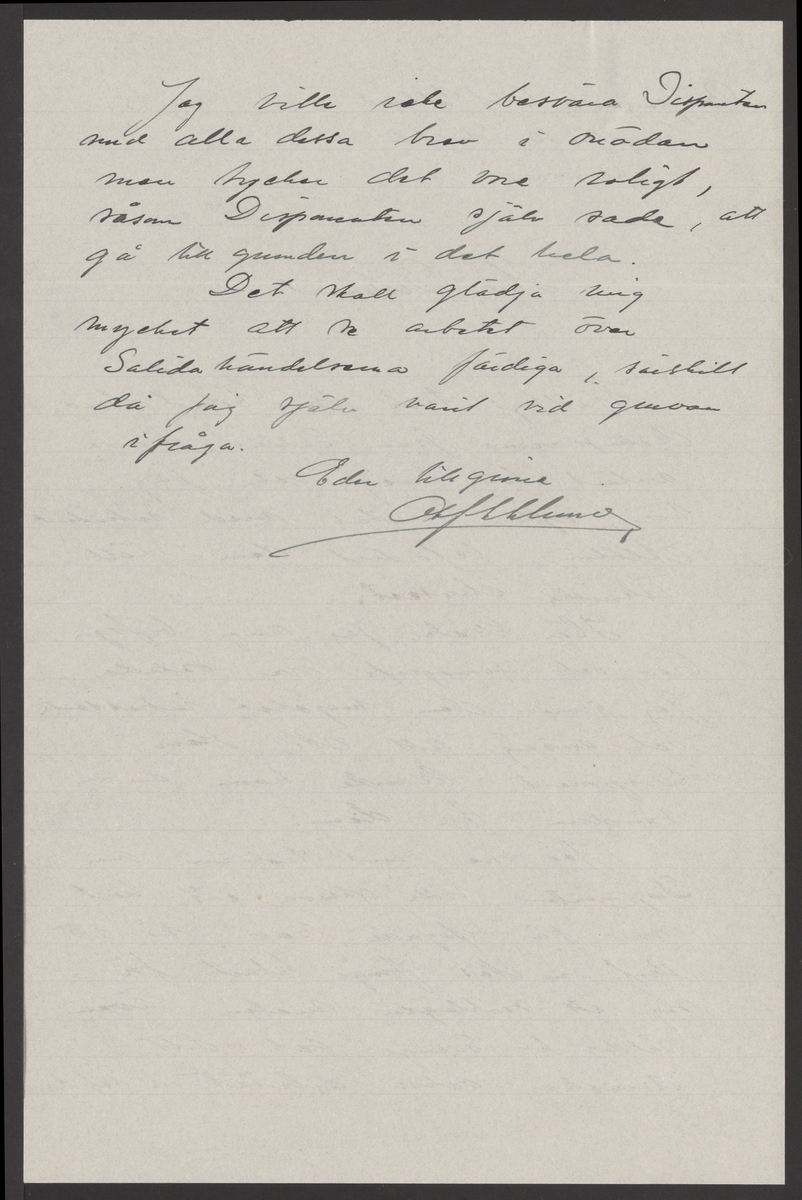 Jag ville icke besvära Disponenten
med alla dessa brev i onödan
men tycker det vore roligt,
såsom Disponenten själv sade, att
gå till grunden i det hela.
Det skall glädja mig
mycket att se arbetet över
Salida händelserna färdiga, särskilt
då jag själv varit vid gruvan
ifråga.
Eder tillgivne